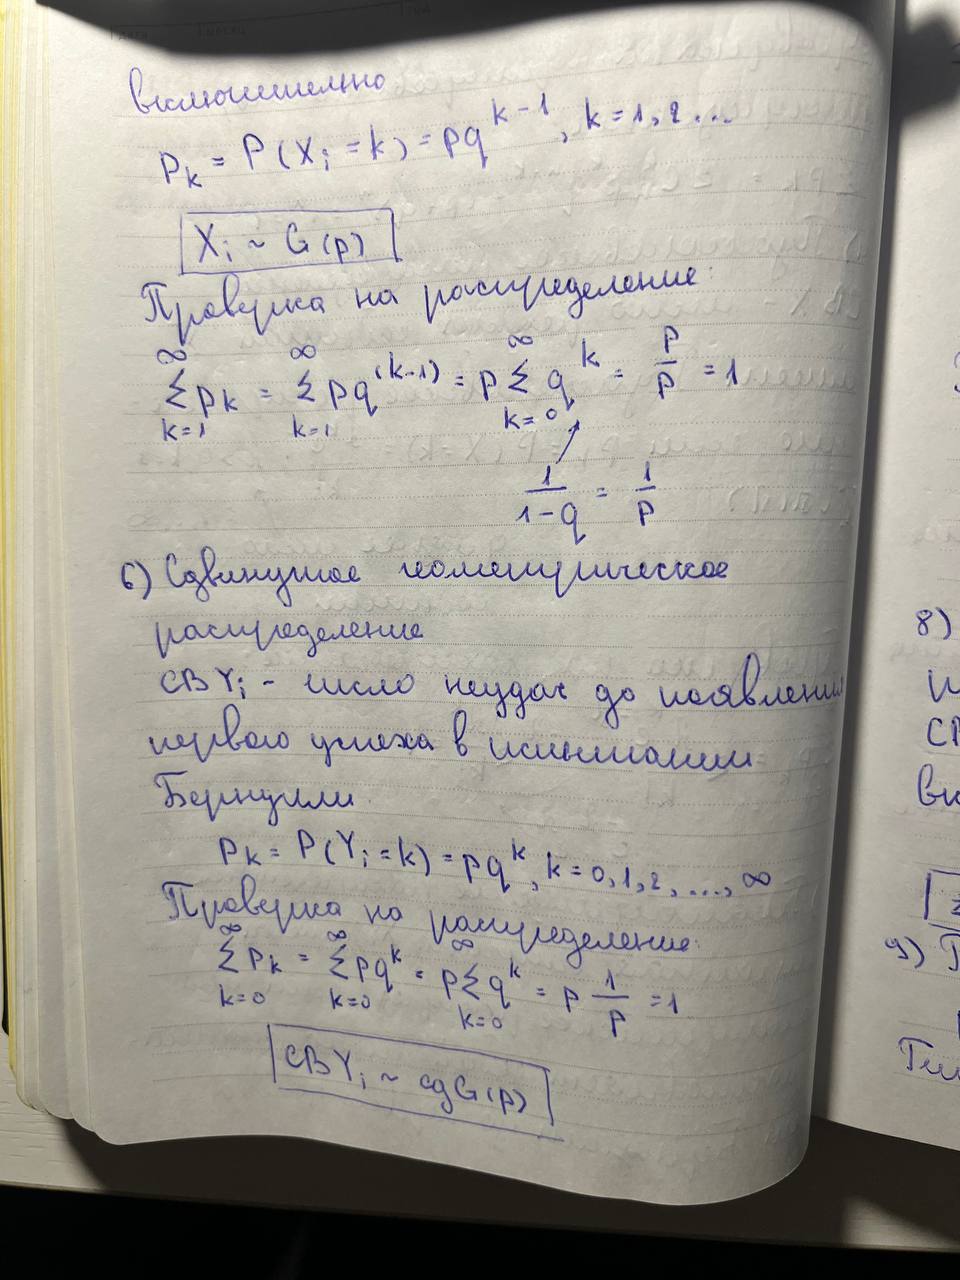 включительно
p_k = P(X_i = k) = pq^{k-1}, k = 1, 2 ...
X_i ~ G(p)
Проверка на распределение:
∑_{k=1}^{∞} p_k = ∑_{k=1}^{∞} pq^{(k-1)} = p ∑_{k=0}^{∞} q^k = p/p = 1
1/(1-q) = 1/p
6) Сдвинутое геометрическое
распределение
СВ Y_i - число неудач до появления
первого успеха в испытании
Бернулли.
p_k = P(Y_i = k) = pq^k, k = 0, 1, 2, ..., ∞
Проверка на распределение:
∑_{k=0}^{∞} p_k = ∑_{k=0}^{∞} pq^k = p ∑_{k=0}^{∞} q^k = p 1/p = 1
СВ Y_i ~ сдG(p)
8)
СВ
9)